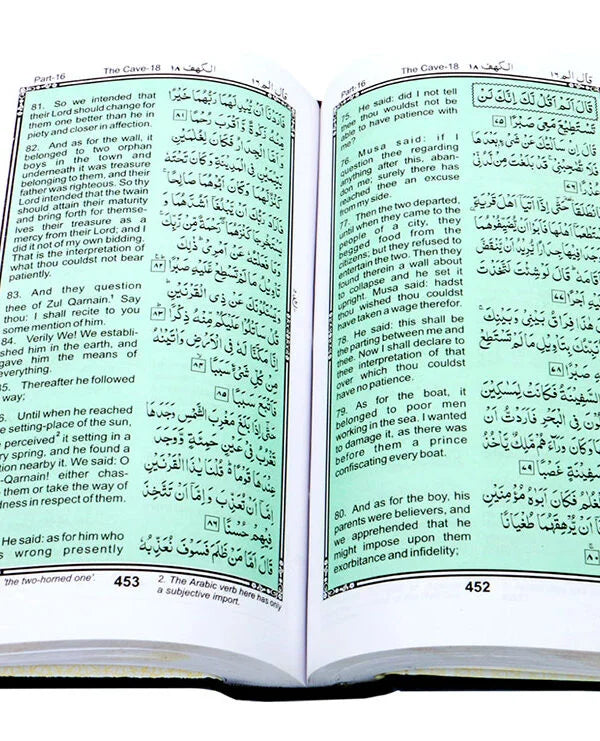 Part-16 The Cave-18 الكهف ١٨ قال الم ١٦
75. He said: did I not tell
thee thou wouldst not be
able to have patience with
me?
76. Musa said: if I
question thee regarding
anything after this, aban-
don me; surely there has
reached thee an excuse
from my side.
77. Then the two departed,
until when they came to the
people of a city, they
begged food from the
citizens; but they refused to
entertain the two. Then they
found therein a wall about
to collapse and he set it
upright. Musa said: hadst
thou wished thou couldst
have taken a wage therefor.
78. He said: this shall be
the parting between me and
thee. Now I shall declare to
thee interpretation of that
over which thou couldst
have no patience.
79. As for the boat, it
belonged to poor men
working in the sea. I wanted
to damage it, as there was
before them a prince
confiscating every boat.
80. And as for the boy, his
parents were believers, and
we apprehended that he
might impose upon them
exorbitance and infidelity;
قَالَ اَلَمْ اَقُلْ لَكَ اِنَّكَ لَنْ
تَسْتَطِيْعَ مَعِيَ صَبْرًا ﴿٧٥﴾
قَالَ اِنْ سَاَلْتُكَ عَنْ شَيْءٍۢ بَعْدَهَا
فَلَا تُصٰحِبْنِيْ ۚ قَدْ بَلَغْتَ مِنْ لَّدُنِّيْ
عُذْرًا ﴿٧٦﴾
فَانْطَلَقَا حَتّٰى اِذَآ اَتَيَآ اَهْلَ قَرْيَةِ
اسْتَطْعَمَآ اَهْلَهَا فَاَبَوْا اَنْ يُّضَيِّفُوْهُمَا
فَوَجَدَا فِيْهَا جِدَارًا يُّرِيْدُ اَنْ يَّنْقَضَّ
فَاَقَامَهٗ ؕ قَالَ لَوْ شِئْتَ لَتَّخَذْتَ
عَلَيْهِ اَجْرًا ﴿٧٧﴾
هٰذَا فِرَاقُ بَيْنِيْ وَبَيْنِكَ ۚ
بِتَاْوِيْلِ مَا لَمْ تَسْتَطِعْ
السَّفِيْنَةُ فَكَانَتْ لِمَسٰكِيْنَ
يَعْمَلُوْنَ فِي الْبَحْرِ فَاَرَدْتُّ اَنْ
وَكَانَ وَرَآءَهُمْ مَّلِكٌ يَّاْخُذُ
سَفِيْنَةٍ غَصْبًا ﴿٧٩﴾
الْغُلٰمُ فَكَانَ اَبَوٰهُ مُؤْمِنَيْنِ
اَنْ يُّرْهِقَهُمَا طُغْيَانًا
﴿٨٠﴾
452
Part-16 The Cave-18 الكهف ١٨ قال الم ١٦
81. So we intended that
their Lord should change for
them one better than he in
piety and closer in affection.
82. And as for the wall, it
belonged to two orphan
boys in the town and
underneath it was treasure
belonging to them, and their
father was righteous. So thy
Lord intended that the twain
should attain their maturity
and bring forth for themse-
lves their treasure as a
mercy from their Lord; and I
did it not of my own bidding.
That is the interpretation of
what thou couldst not bear
patiently.
83. And they question
thee of Zul Qarnain.¹ Say
thou: I shall recite to you
some mention of him.
84. Verily We! We establi-
shed him in the earth, and
gave him the means of
everything.
85. Thereafter he followed
way;
Until when he reached
the setting-place of the sun,
perceived² it setting in a
spring, and he found a
nation nearby it. We said: O
Qarnain! either chas-
them or take the way of
ndness in respect of them.
He said: as for him who
wrong presently
فَاَرَدْنَآ اَنْ يُّبْدِلَهُمَا رَبُّهُمَا خَيْرًا
مِّنْهُ زَكٰوةً وَّاَقْرَبَ رُحْمًا ﴿٨١﴾
وَاَمَّا الْجِدَارُ فَكَانَ لِغُلٰمَيْنِ
يَتِيْمَيْنِ فِي الْمَدِيْنَةِ وَكَانَ تَحْتَهٗ
كَنْزٌ لَّهُمَا وَكَانَ اَبُوْهُمَا صَالِحًا ۚ
فَاَرَادَ رَبُّكَ اَنْ يَّبْلُغَآ اَشُدَّهُمَا
وَيَسْتَخْرِجَا كَنْزَهُمَا رَحْمَةً مِّنْ رَّبِّكَ ۚ
وَمَا فَعَلْتُهٗ عَنْ اَمْرِيْ ؕ ذٰلِكَ
تَاْوِيْلُ مَا لَمْ تَسْطِعْ عَّلَيْهِ صَبْرًا ﴿٨٢﴾
وَيَسْـَٔلُوْنَكَ عَنْ ذِي الْقَرْنَيْنِ ؕ
قُلْ سَاَتْلُوْا عَلَيْكُمْ مِّنْهُ ذِكْرًا ﴿٨٣﴾
اِنَّا مَكَّنَّا لَهٗ فِي الْاَرْضِ وَاٰتَيْنٰهُ
مِنْ كُلِّ شَيْءٍ سَبَبًا ﴿٨٤﴾
فَاَتْبَعَ سَبَبًا ﴿٨٥﴾
حَتّٰىٓ اِذَا بَلَغَ مَغْرِبَ الشَّمْسِ وَجَدَهَا
تَغْرُبُ فِيْ عَيْنٍ حَمِئَةٍ وَّوَجَدَ
عِنْدَهَا قَوْمًا ؕ قُلْنَا يٰذَا الْقَرْنَيْنِ
اِمَّآ اَنْ تُعَذِّبَ وَاِمَّآ اَنْ تَتَّخِذَ
فِيْهِمْ حُسْنًا ﴿٨٦﴾
قَالَ اَمَّا مَنْ ظَلَمَ فَسَوْفَ نُعَذِّبُهٗ
'the two-horned one'.
453
2. The Arabic verb here has only
a subjective import.